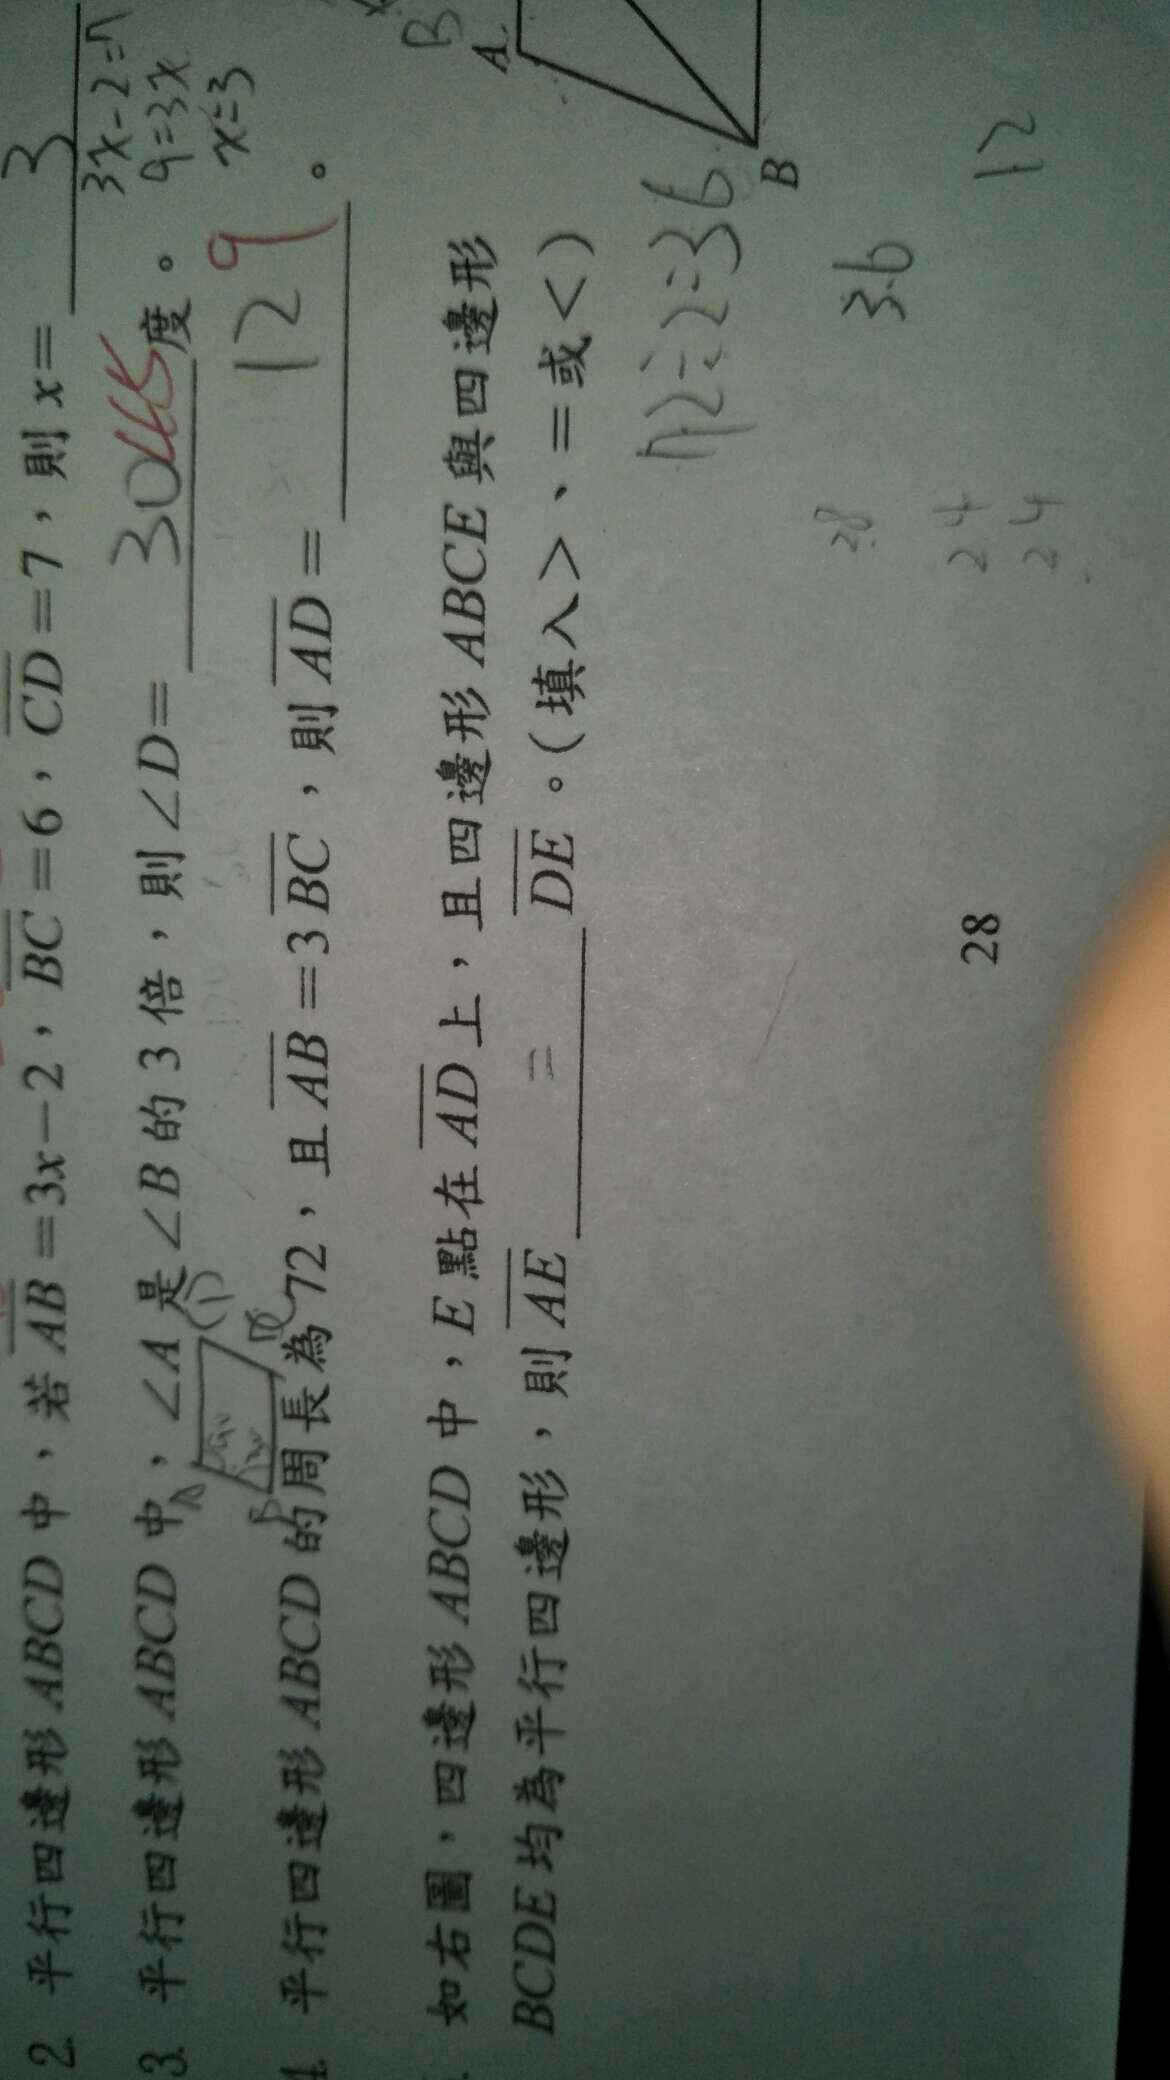 2. 平行四邊形 ABCD 中，若 AB=3x-2，BC=6，CD=7，則 x= 3
3x-2=7
9=3x
x=3
3. 平行四邊形 ABCD 中，∠A 是 ∠B 的 3 倍，則 ∠D= 30 45 度。
4. 平行四邊形 ABCD 的周長為 72，且 AB=3BC，則 AD= 12 9 。
如右圖，四邊形 ABCD 中，E 點在 AD 上，且四邊形 ABCE 與四邊形
BCDE 均為平行四邊形，則 AE = DE。(填入>、=或<)
A
B
B
72÷2=36
36
12
28
24
24
28